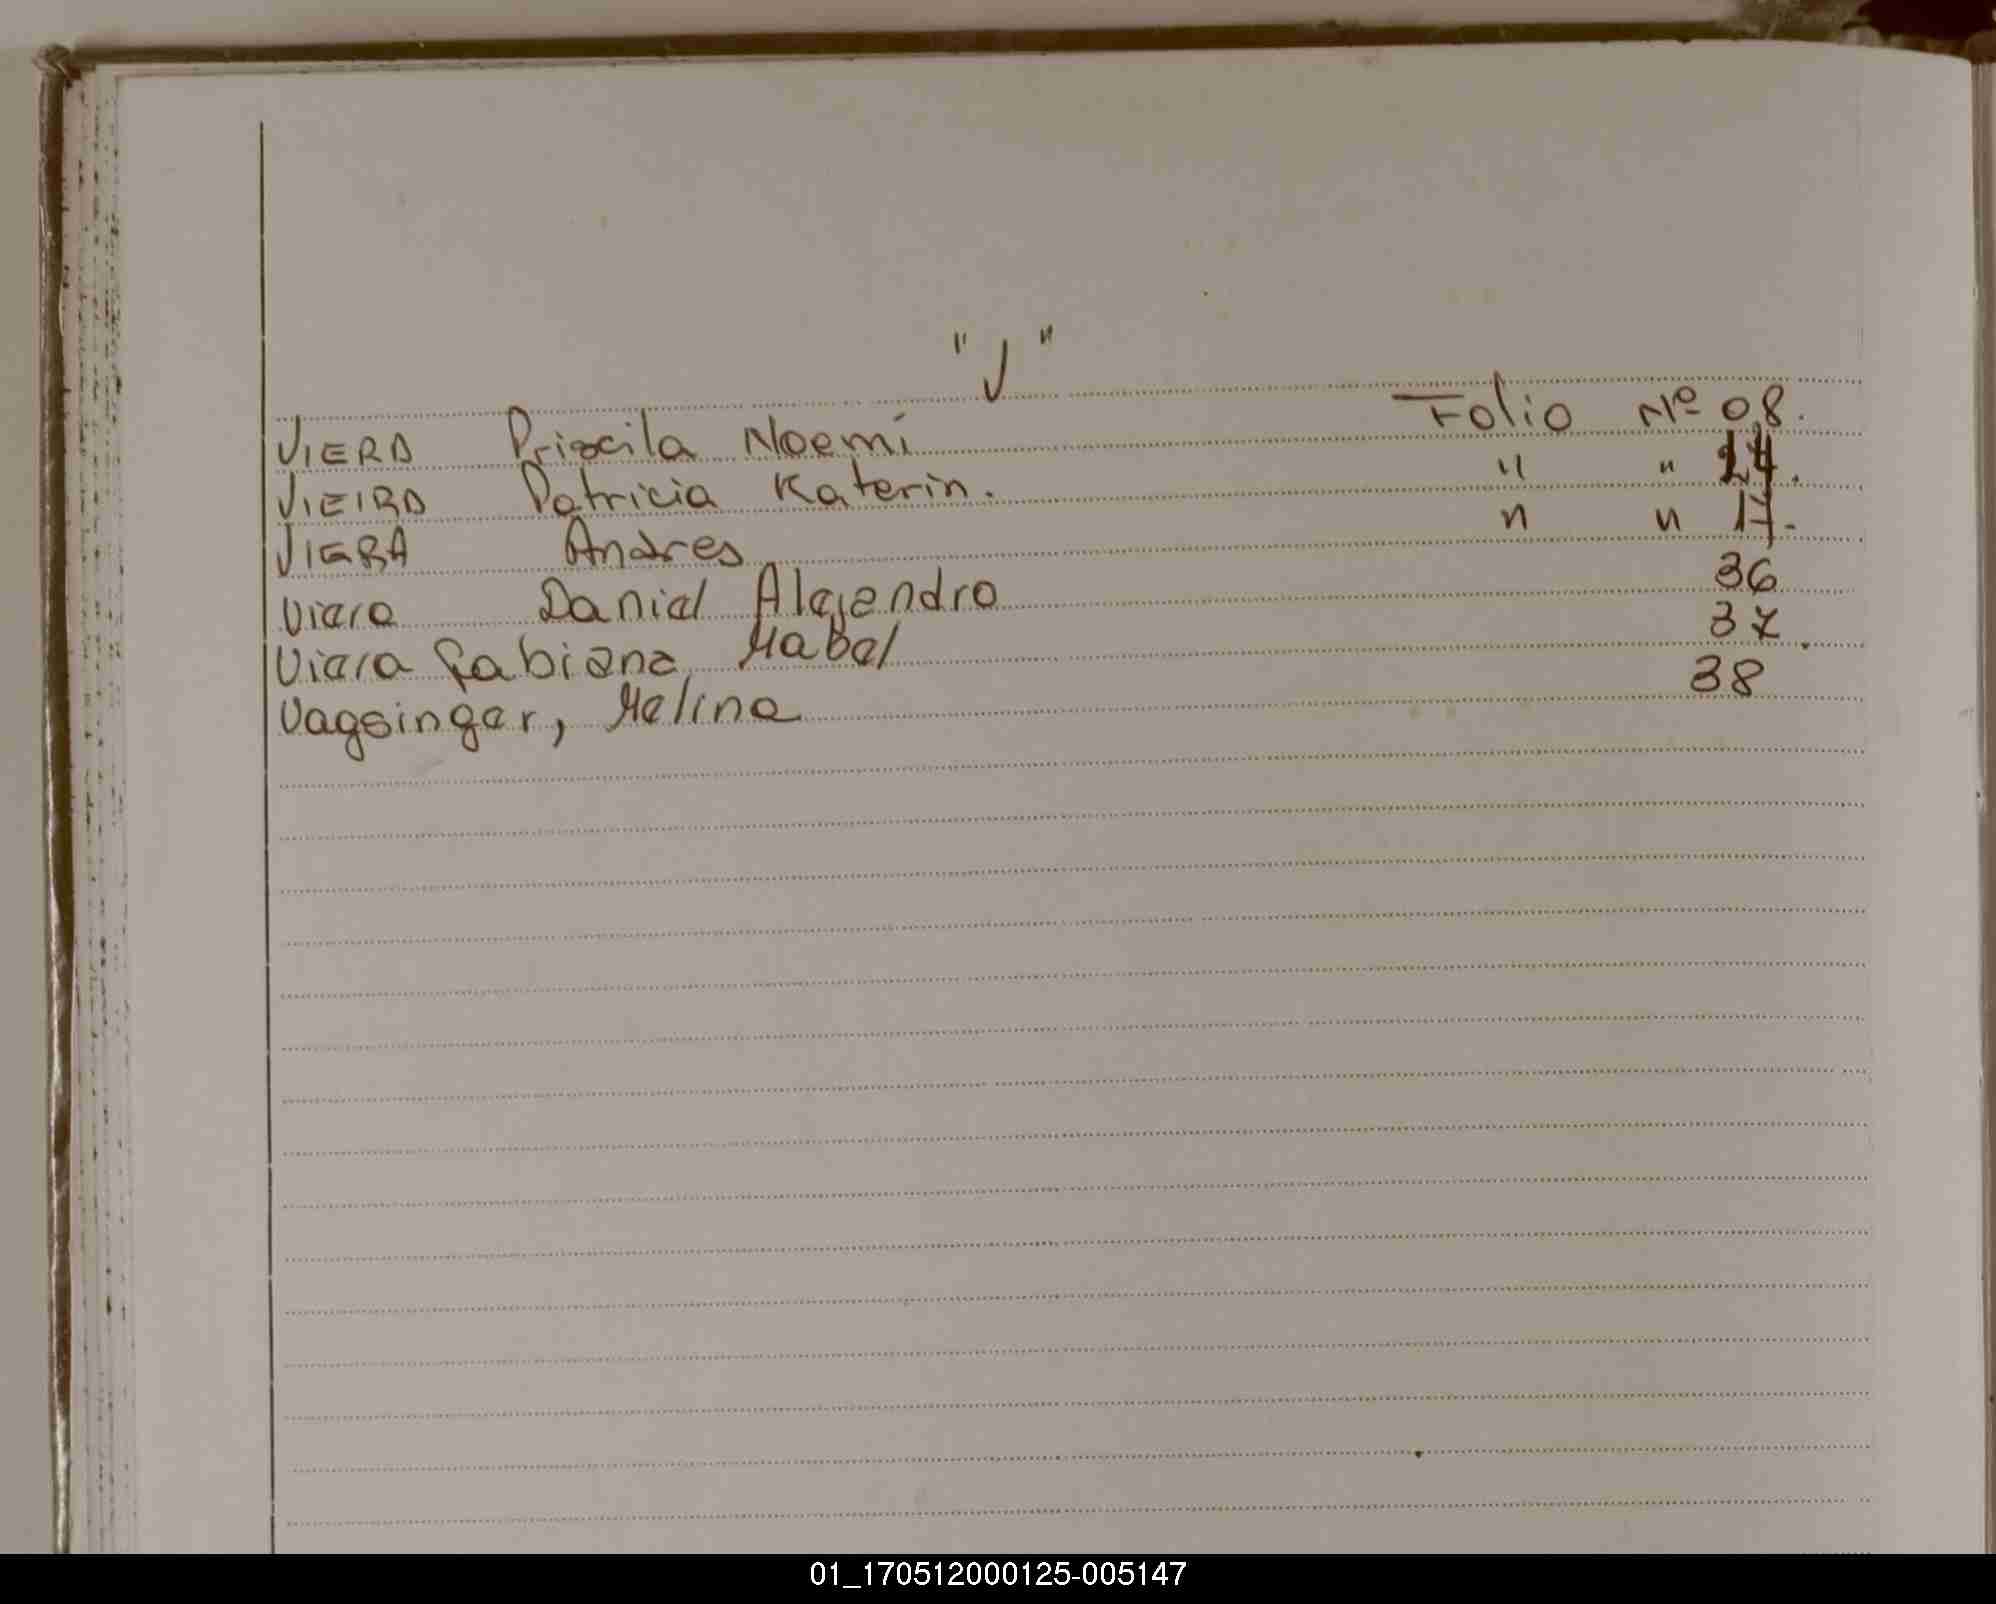 "V"
VIERA Priscila Noemí Folio Nº 08.
VIEIRA Patricia Katerin. " " 24.
VIERA Andres " " 17.
Viera Daniel Alejandro 36
Viera Fabiana Mabel 37.
Vagsinger, Melina 38
01_170512000125-005147